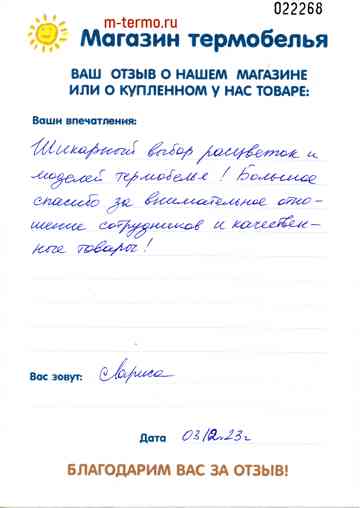 022268
m-termo.ru
Магазин термобелья
ВАШ ОТЗЫВ О НАШЕМ МАГАЗИНЕ
ИЛИ О КУПЛЕННОМ У НАС ТОВАРЕ:
Ваши впечатления:
Шикарный выбор расцветок и
моделей термобелья! Большое
спасибо за внимательное отно-
шение сотрудников и качествен-
ные товары!
Вас зовут: Лариса
Дата 03/12.23г.
БЛАГОДАРИМ ВАС ЗА ОТЗЫВ!